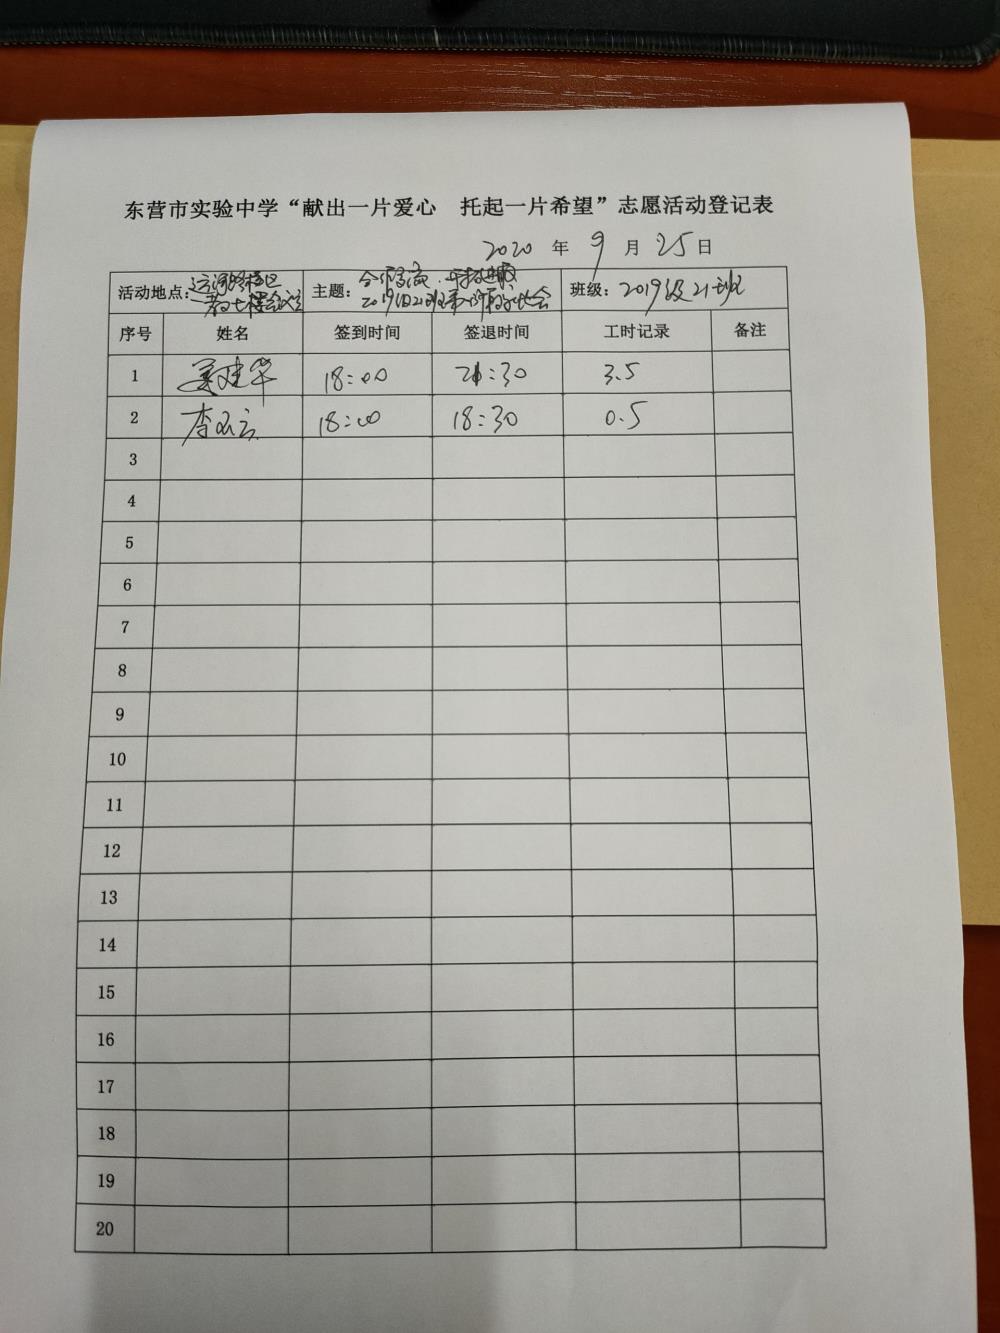 东营市实验中学“献出一片爱心 托起一片希望”志愿活动登记表
2020 年 9 月 25 日
活动地点: 运河路校区 主题: 班级: 2019级21班
序号 姓名 签到时间 签退时间 工时记录 备注
1 姜建华 18:00 21:30 3.5
2 李 18:00 18:30 0.5
3
4
5
6
7
8
9
10
11
12
13
14
15
16
17
18
19
20